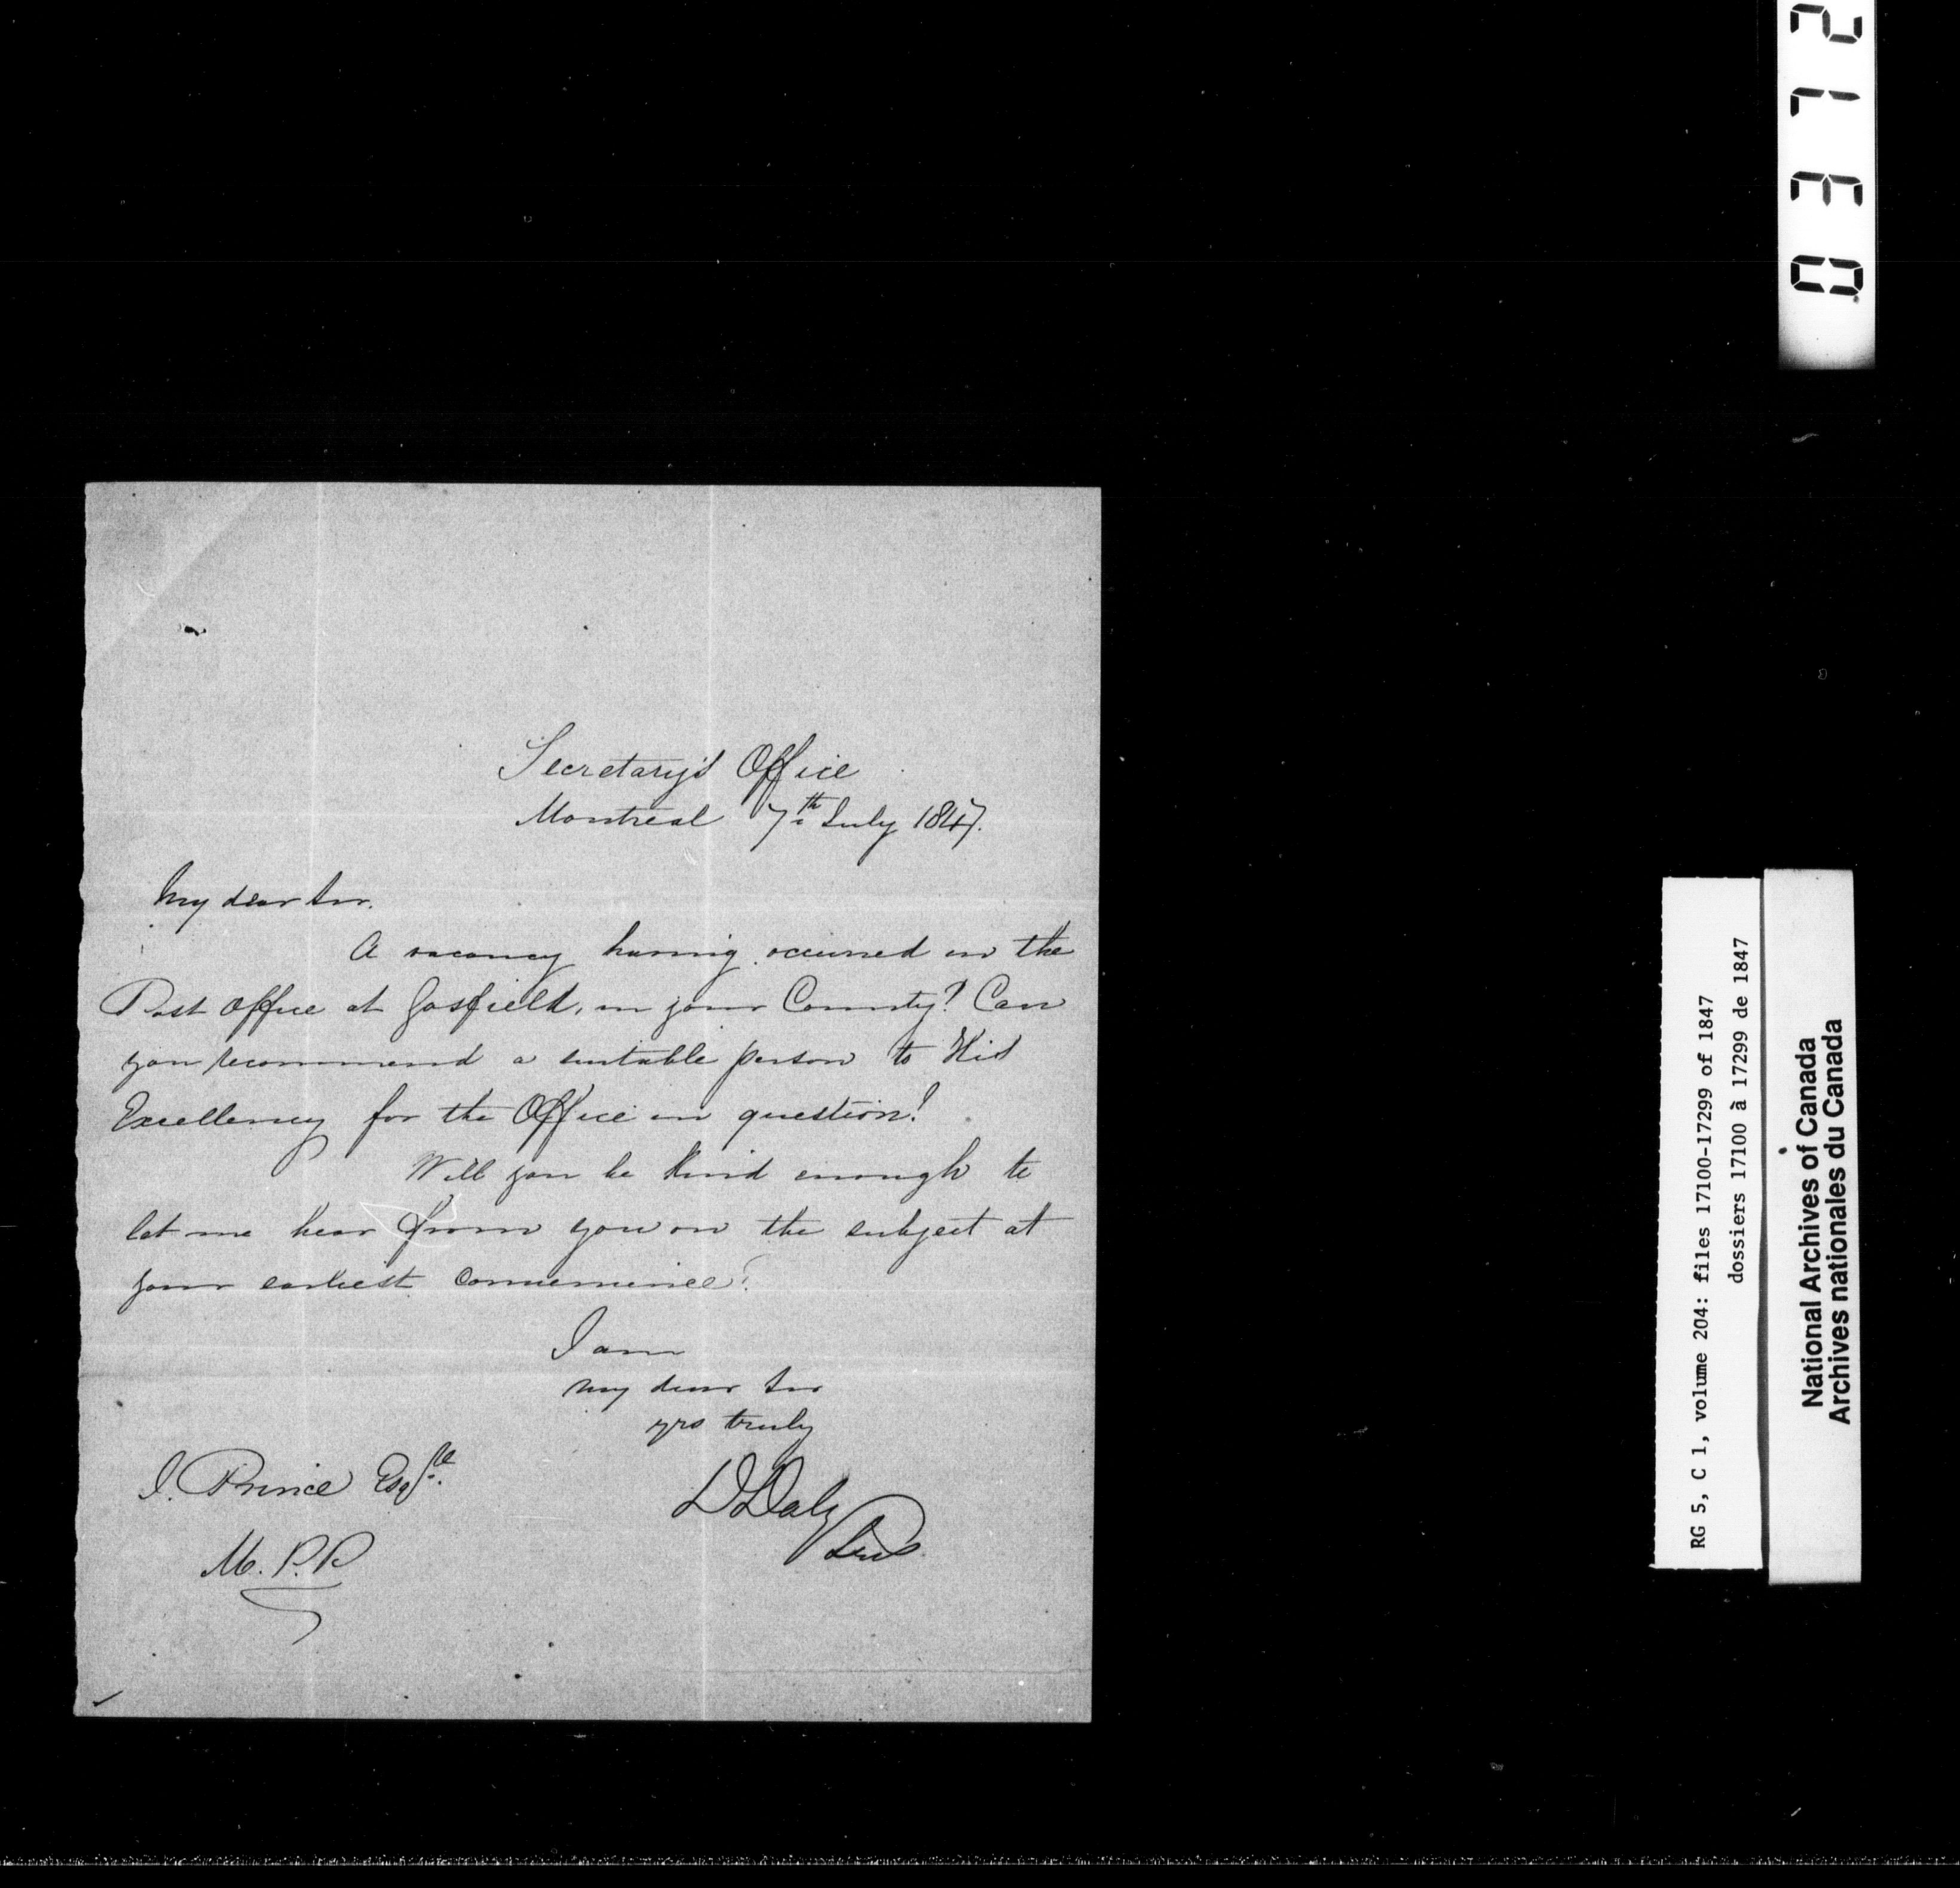 Secretary's Office
Montreal 7th July 1847.
My dear Sir.
A vacancy having occurred in the
Post Office at Gosfield, in your County? Can
you recommend a suitable person to His
Excellency for the Office in question?
Will you be kind enough to
let me hear from you on the subject at
your earliest convenience?
I am
my dear Sir
yrs truly
D Daly
J. Prince Esqre.
M.P.P.
0372
RG 5, C 1, volume 204: files 17100-17299 of 1847
dossiers 17100 à 17299 de 1847
National Archives of Canada
Archives nationales du Canada